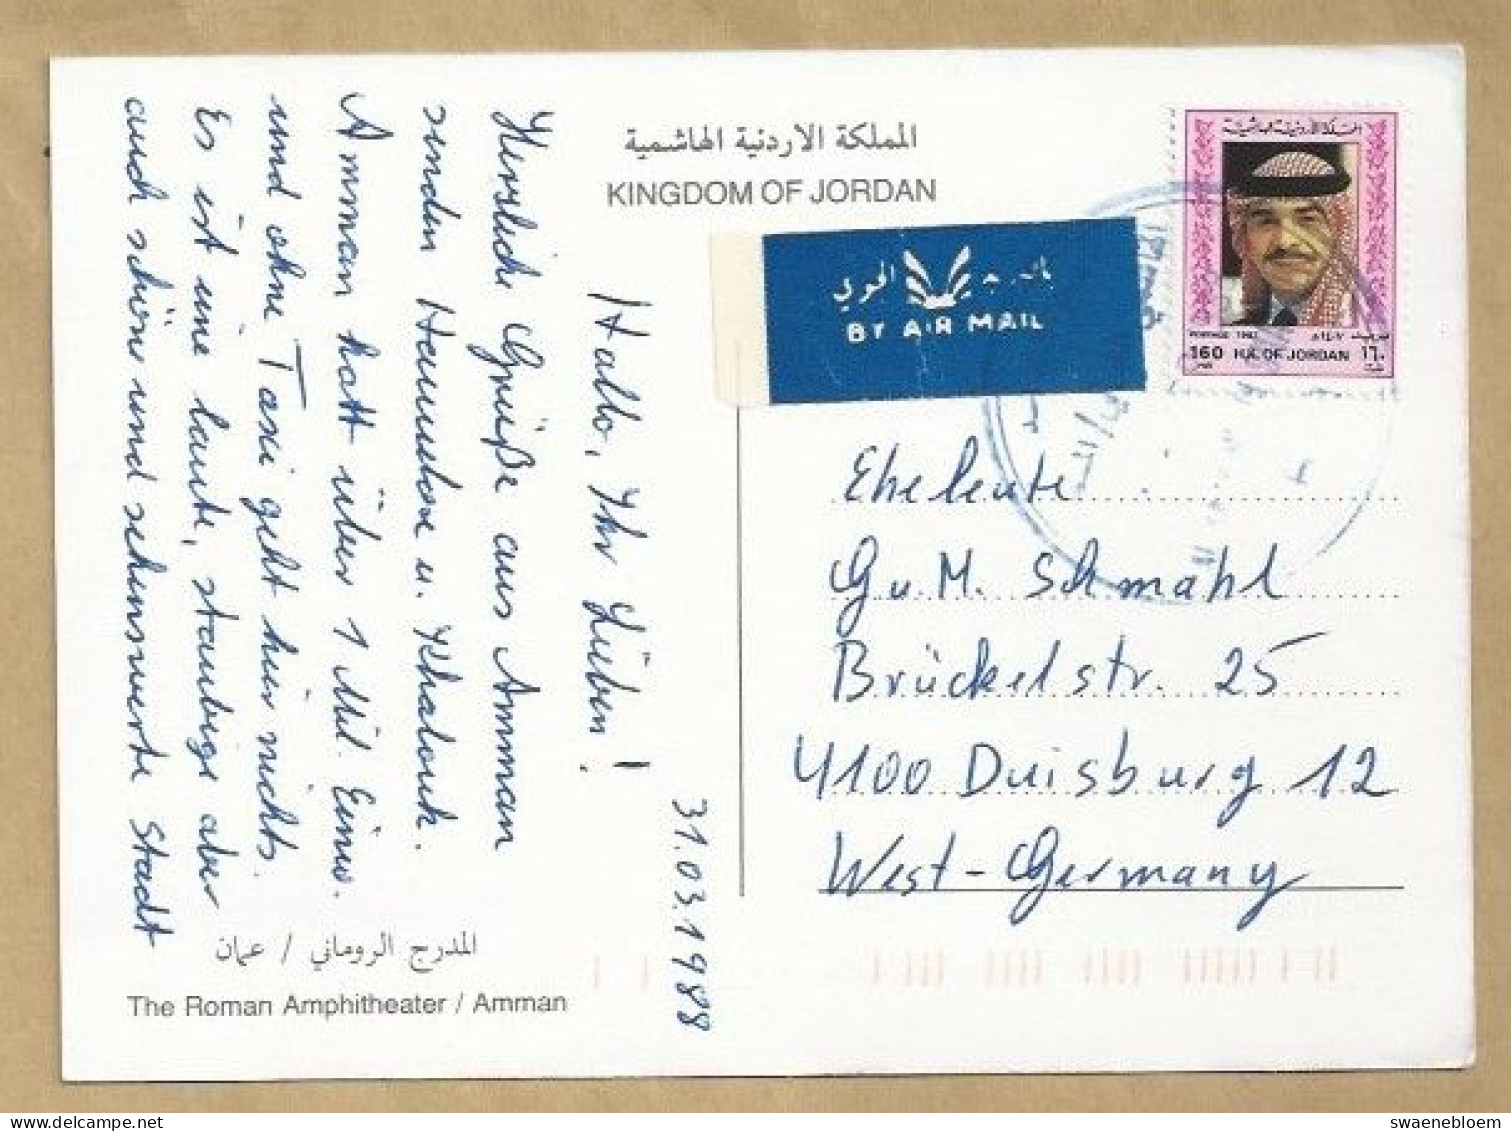 المملكة الأردنية الهاشمية
KINGDOM OF JORDAN
المملكة الأردنية الهاشمية
POSTAGE 1987
160 H.K. OF JORDAN ١٦٠
بالبريد الجوي
BY AIR MAIL
31.03.1988
Hallo, Ihr Lieben!
Herzliche Grüße aus Amman
senden Hannelore u. Khalouk.
Amman hat über 1 Mil. Einw.
und ohne Taxi geht hier nichts.
Es ist eine laute, staubige aber
auch schöne und sehenswerte Stadt
Eheleute
G u. M. Schmahl
Brückelstr. 25
4100 Duisburg 12
West-Germany
المدرج الروماني / عمان
The Roman Amphitheater / Amman
swaenebloem